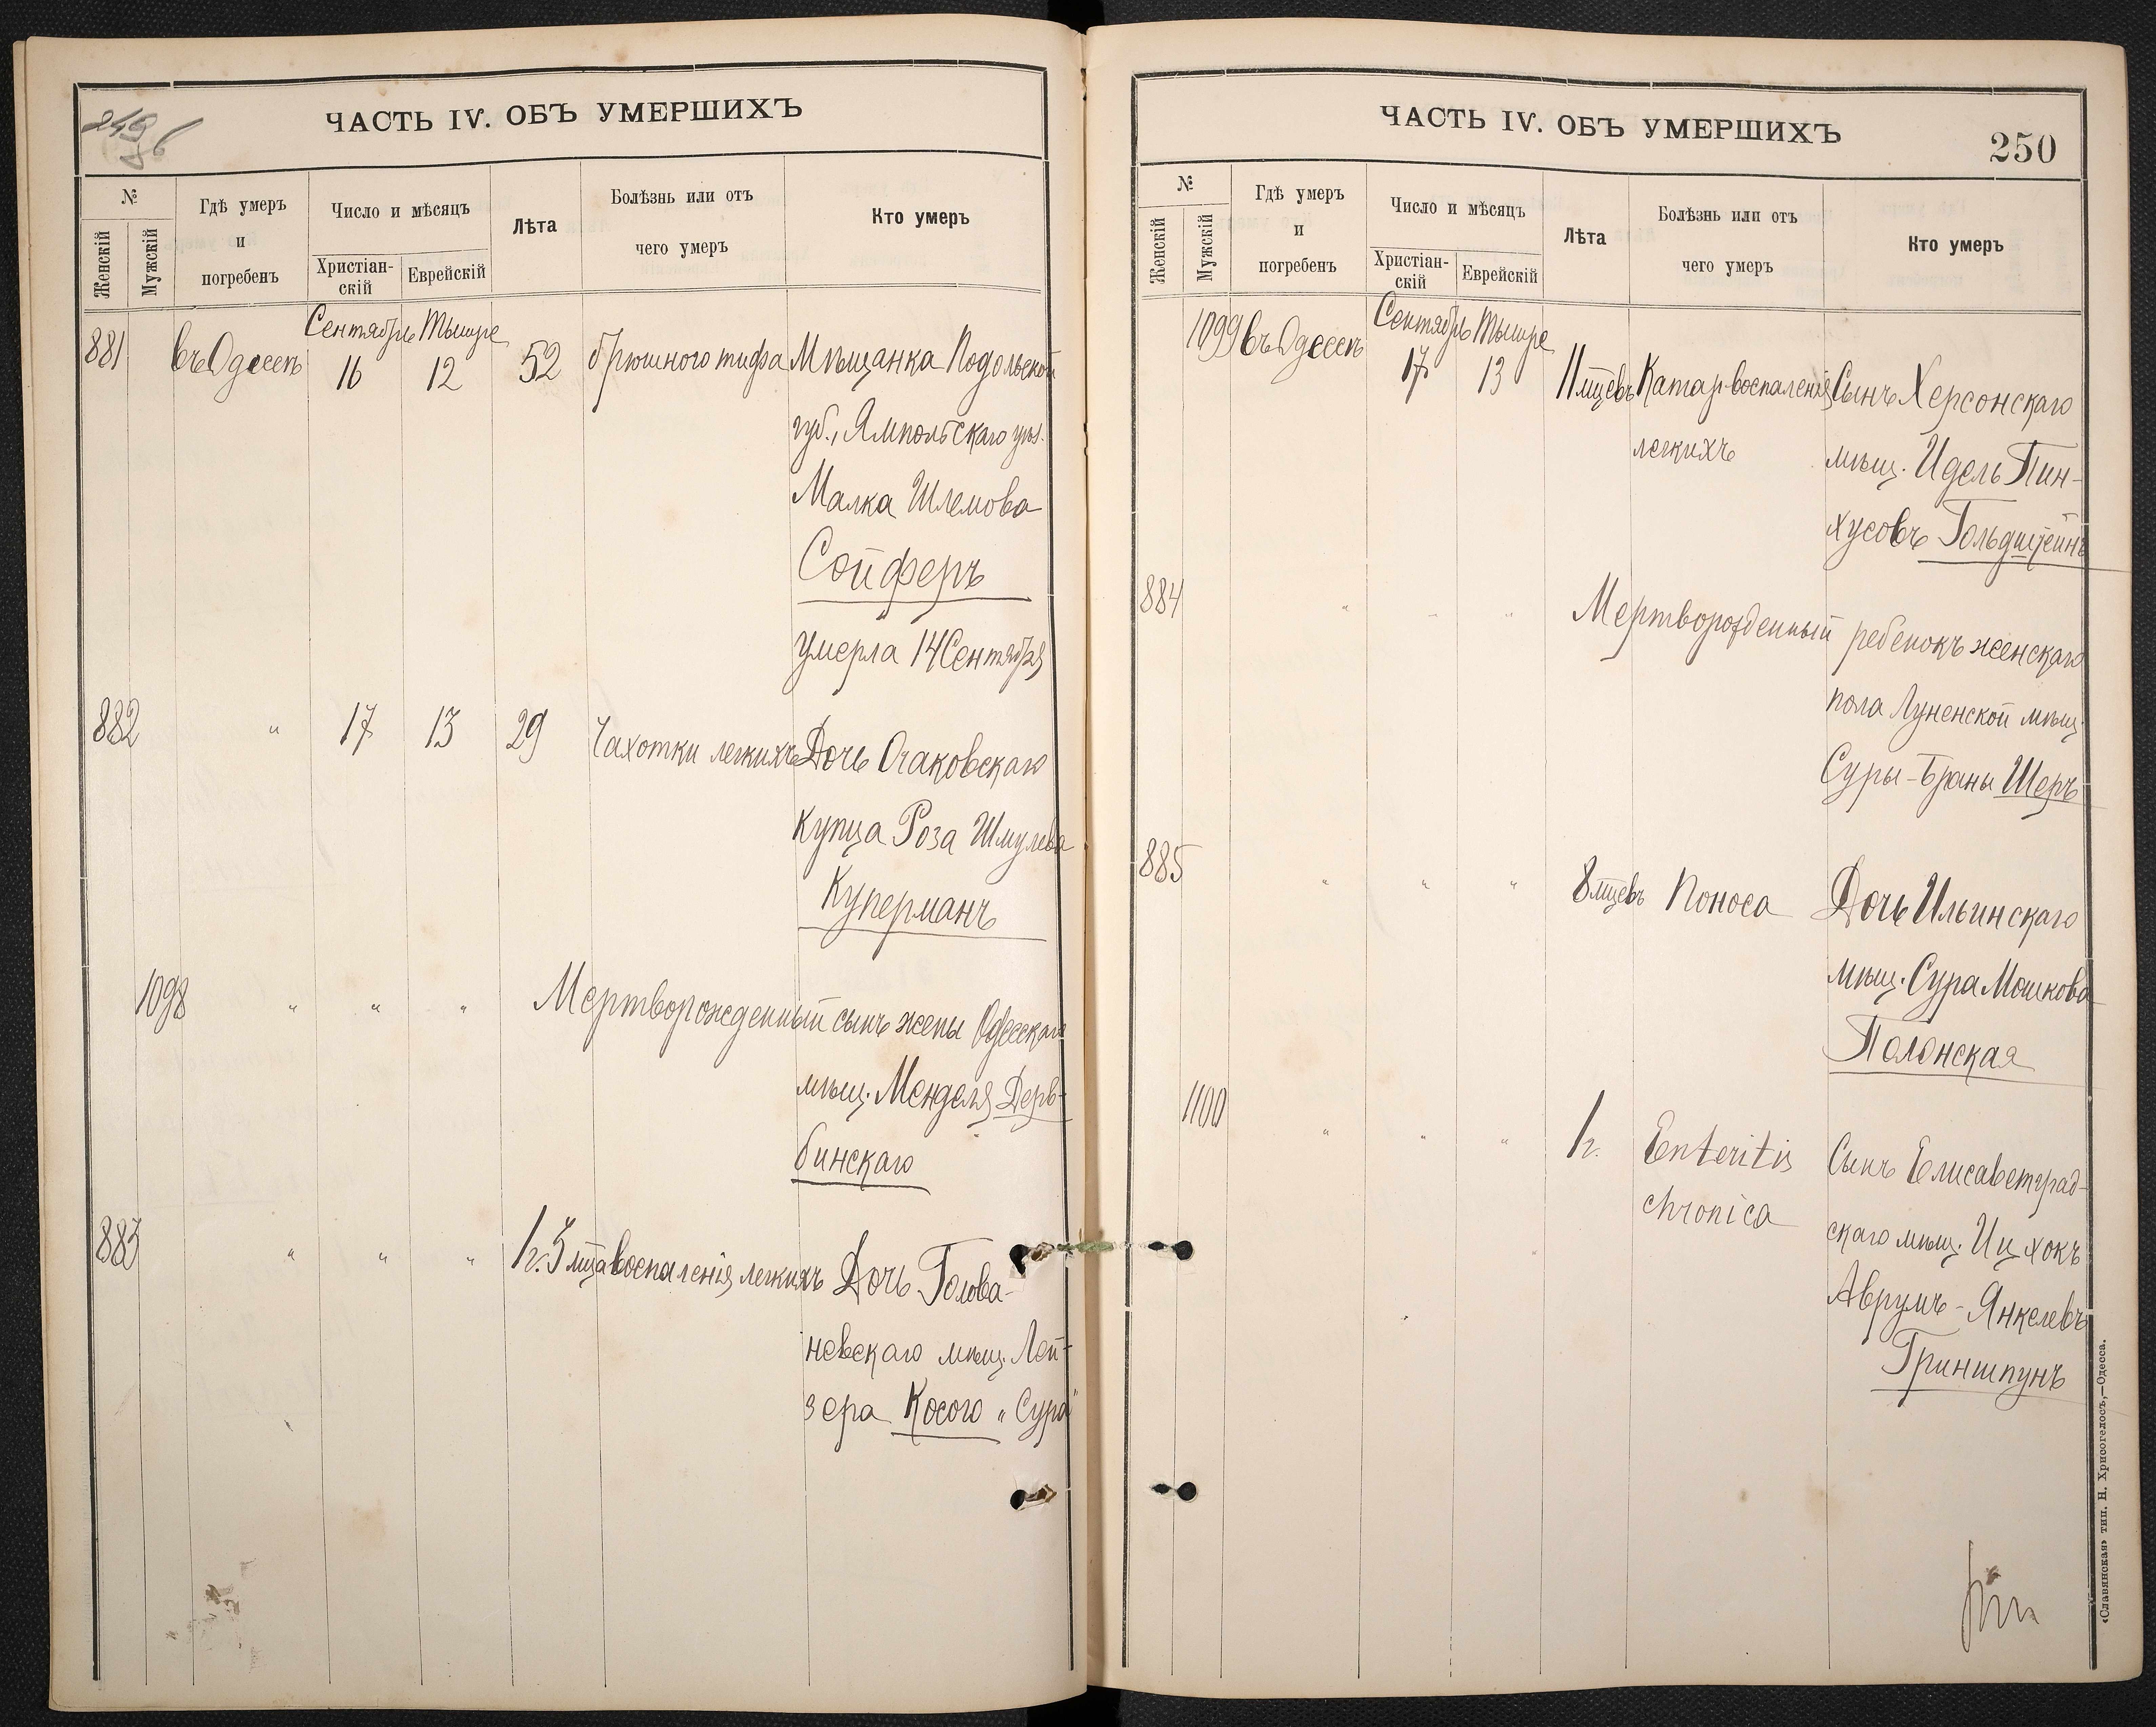 249 б
ЧАСТЬ IV. ОБЪ УМЕРШИХЪ
№
Женскій
Мужскій
Гдѣ умеръ
и
погребенъ
Число и мѣсяцъ
Христіан-
скій
Еврейскій
Лѣта
Болѣзнь или отъ
чего умеръ
Кто умеръ
Сентябрь Тышре
881 въ Одессѣ 16 12 52 брюшного тифа Мѣщанка Подольской
губ., Ямпольскаго уѣз.
Малка Шлемова
Сойферъ
умерла 14 Сентября
882 " 17 13 29 Чахотки легкихъ Дочь Очаковскаго
купца Роза Шмулева
Куперманъ
1098 " " " Мертворожденный сынъ жены Одесскаго
мѣщ. Менделя Дерв-
бинскаго
883 " " " 1 г. 3 мца воспаленія легкихъ Дочь Голова-
невскаго мѣщ. Лей-
зера Косого „Сура"
ЧАСТЬ IV. ОБЪ УМЕРШИХЪ
250
№
Женскій
Мужскій
Гдѣ умеръ
и
погребенъ
Число и мѣсяцъ
Христіан-
скій
Еврейскій
Лѣта
Болѣзнь или отъ
чего умеръ
Кто умеръ
Сентябрь Тышре
1099 въ Одессѣ 17 13 11 мцевъ Катар. воспаленія Сынъ Херсонскаго
легкихъ мѣщ. Идель Пин-
хусовъ Гольдштейнъ
884 " " " Мертворожденный ребенокъ женскаго
пола мѣщ.
Суры-Браны Шеръ
885 " " " 8 мцевъ Поноса Дочь Ильинскаго
мѣщ. Сура Мошкова
Полонская
1100 " " " 1 г. Enteritis Сынъ Елисаветград-
chronica скаго мѣщ. Ицхокъ
Аврумъ-Янкелевъ
Гриншпунъ
«Славянская» тип. Н. Хрисогелосъ,—Одесса.